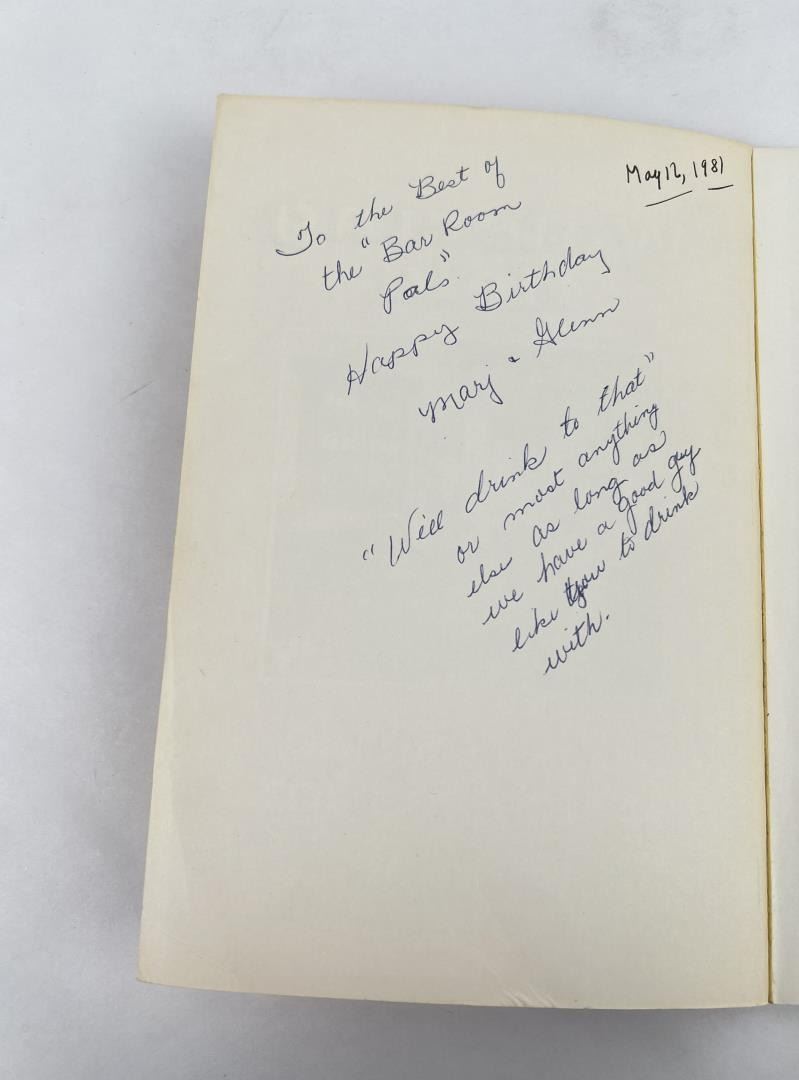 May 12, 1981
To the Best of
the "Bar Room
Pals".
Happy Birthday
Marj & Glenn
"Will drink to that"
or most anything
else as long as
we have a good guy
like you to drink
with.